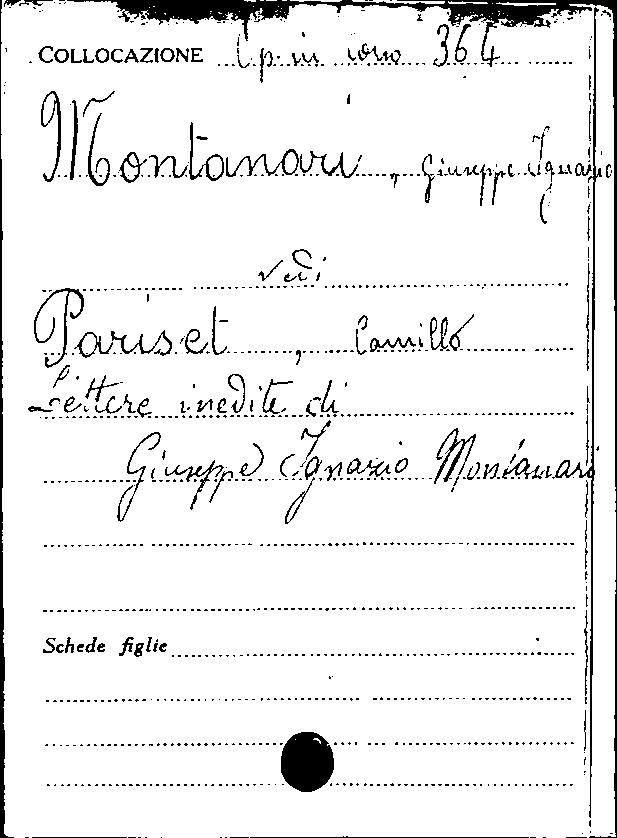 COLLOCAZIONE Op. in corso 364
Montanari, Giuseppe Ignazio
vedi
Pariset, Camillo
Lettere inedite di
Giuseppe Ignazio Montanari
Schede figlie